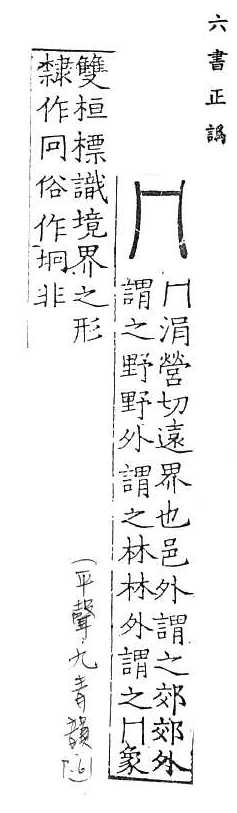 六書正譌
冂
冂涓營切遠界也邑外謂之郊郊外
謂之野野外謂之林林外謂之冂象
雙桓標識境界之形
隸作冋俗作坰非
(平聲九青韻 P.6)